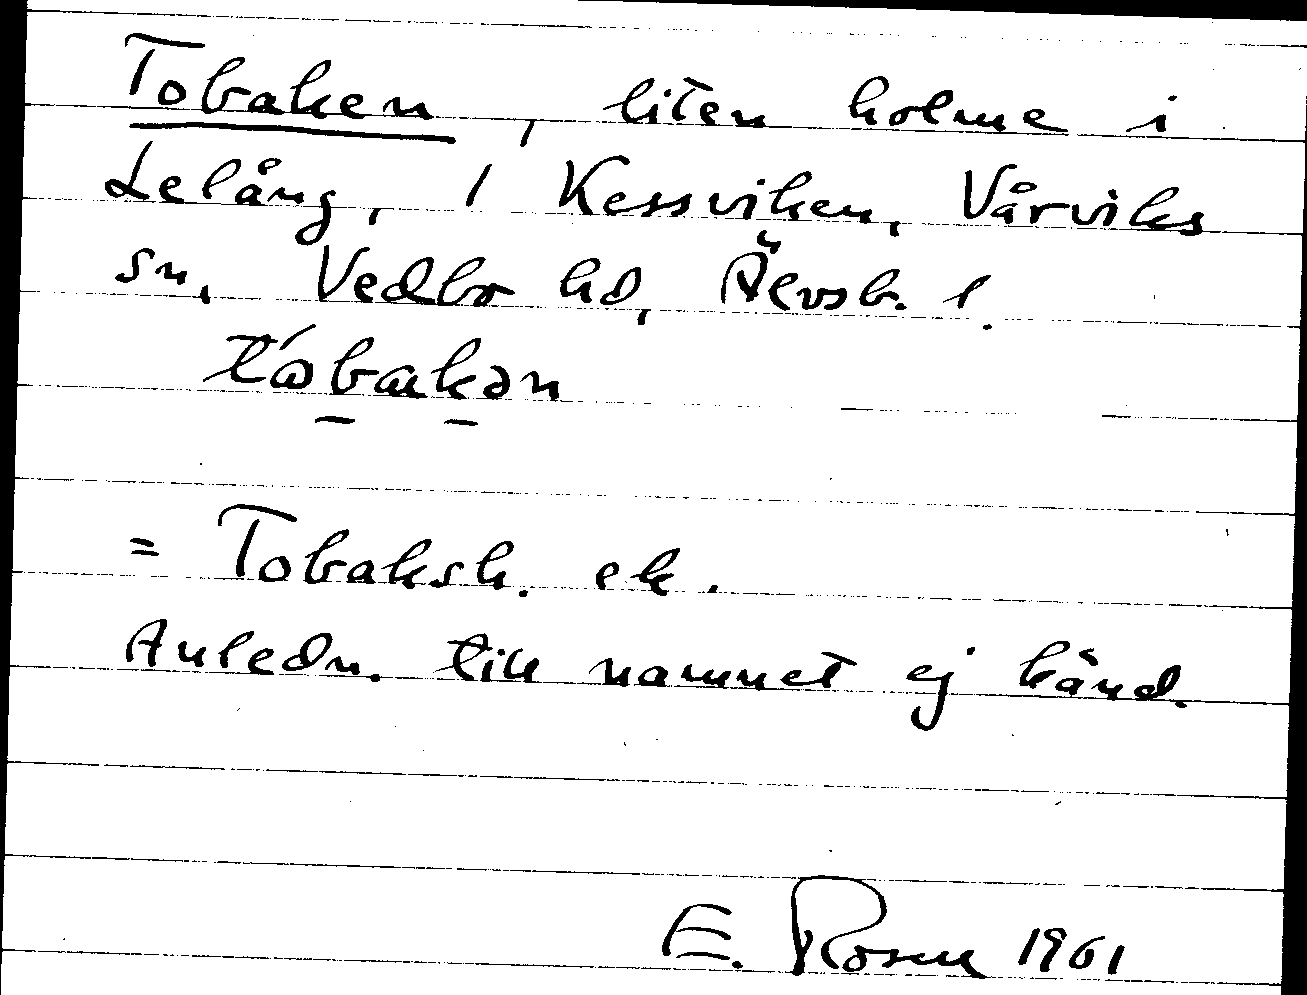 Tobaken, liten holme i
Lelång, i Kessviken, Vårviks
sn, Vedbo hd, Älvsb. l.
= Tobaksh. ek.
Anledn. till namnet ej känd.
E. Rosen 1961